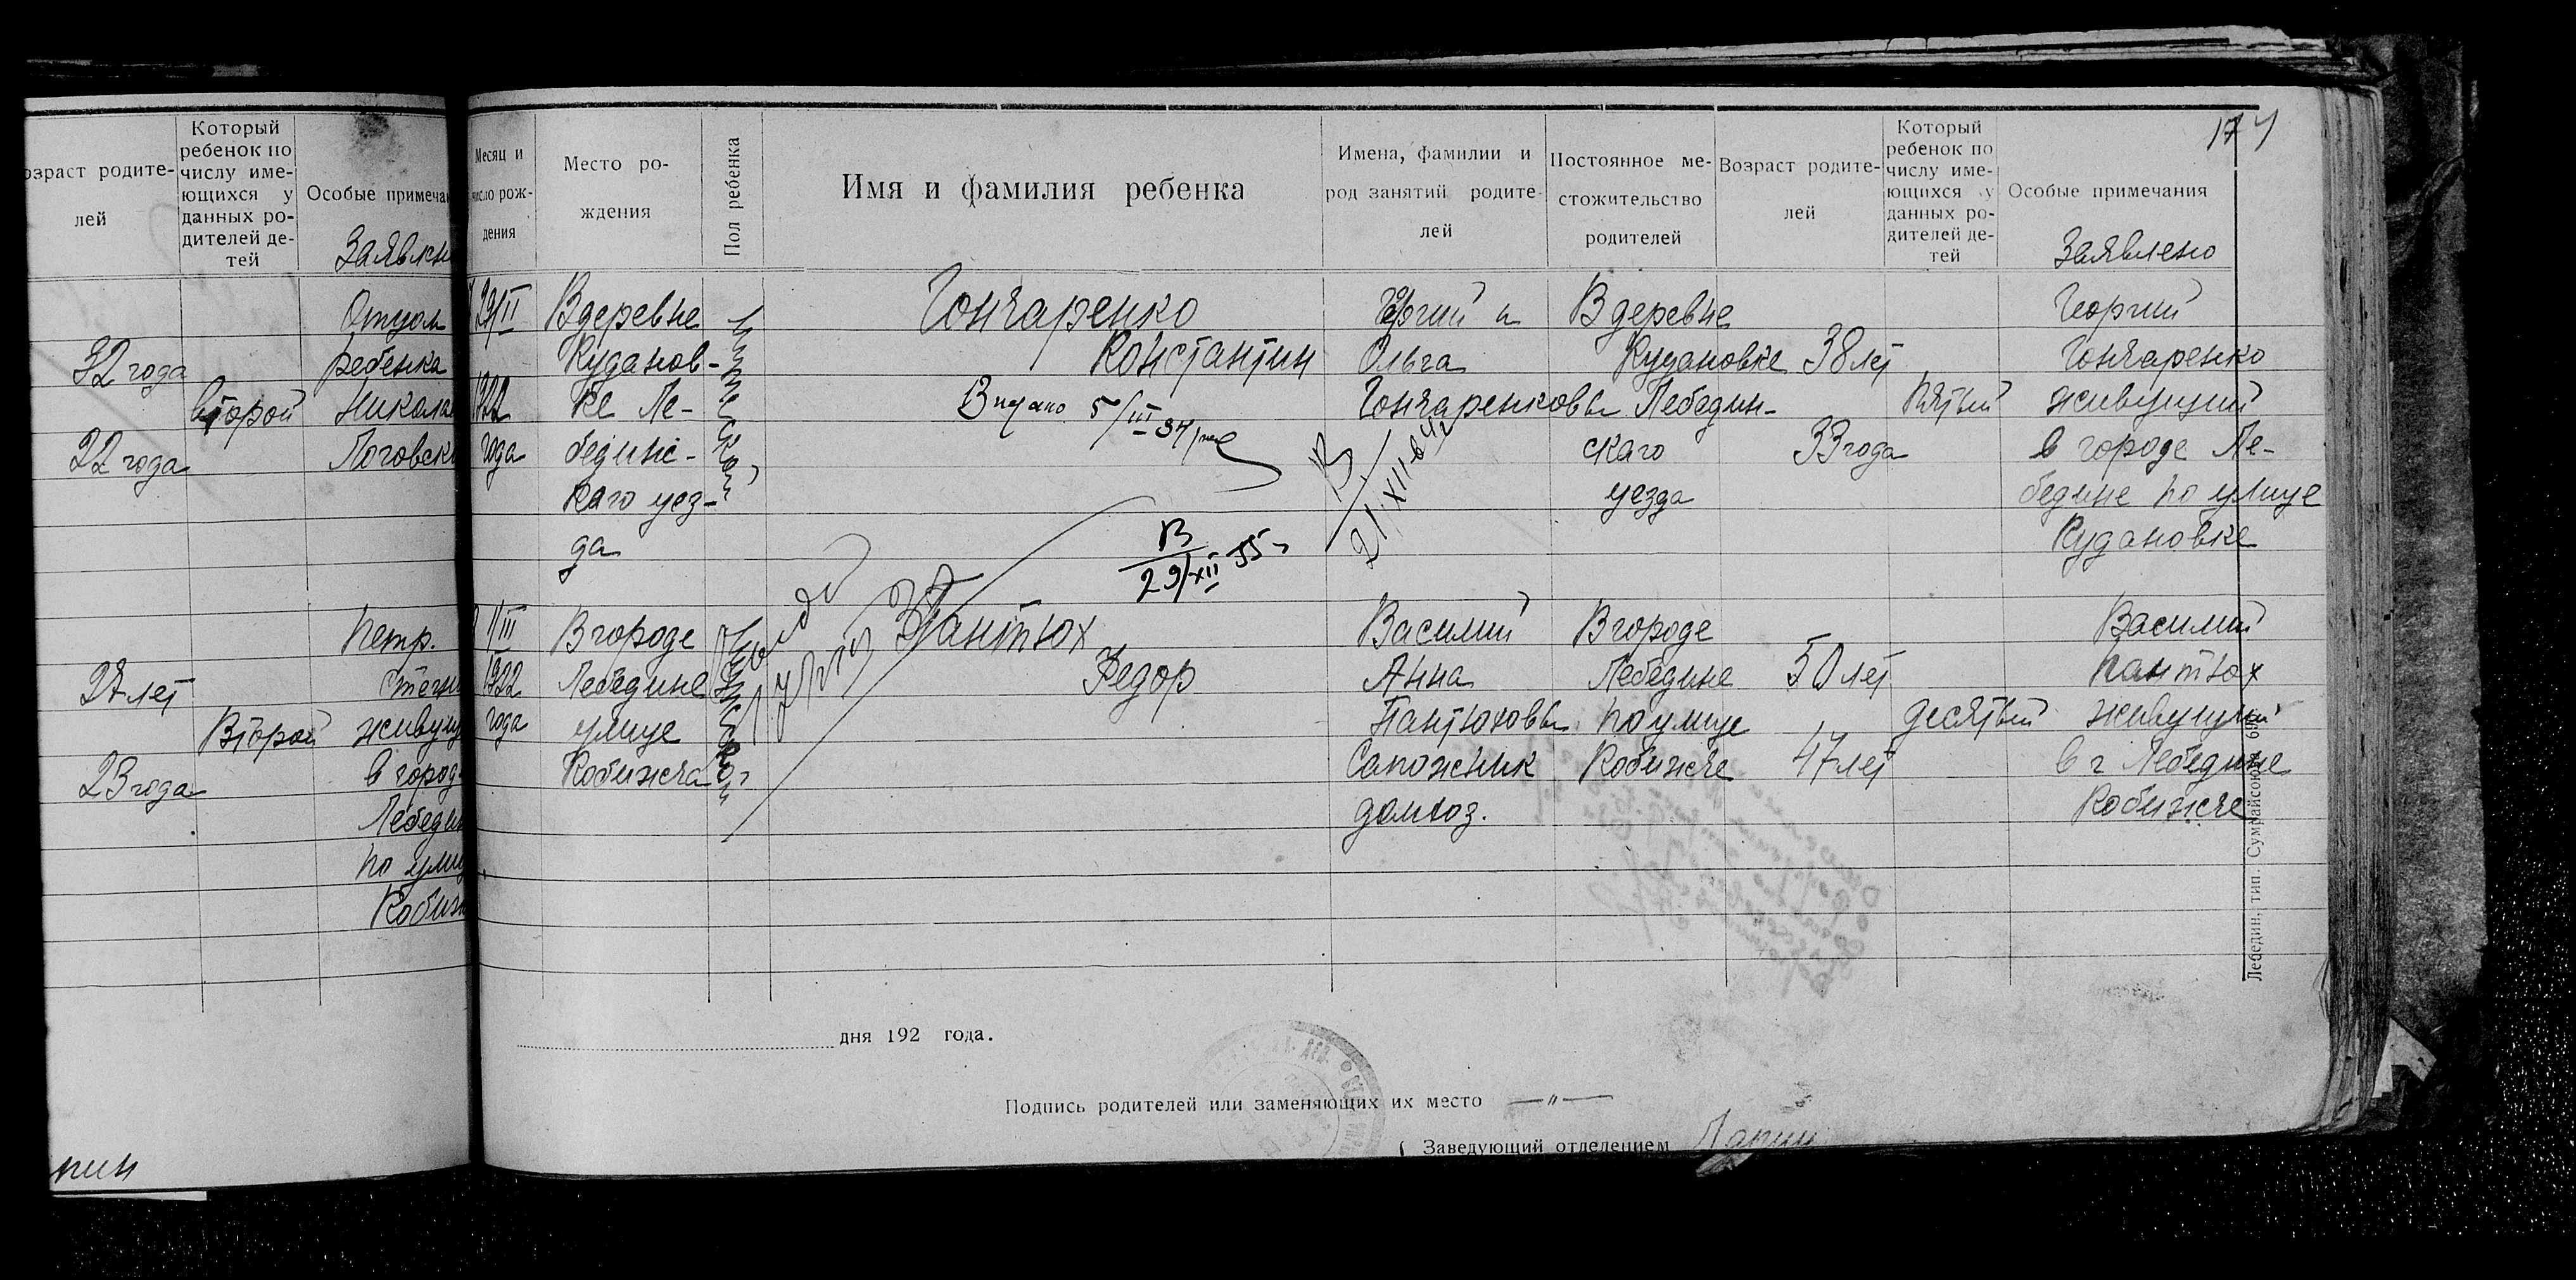 174
озраст родите-
лей
Который
ребенок по
числу име-
ющихся у
данных ро-
дителей де-
тей
Особые примеча
Заявлен
32 года
22 года
второй
Отцом
ребенка
Никола
Логовски
27 лет
23 года
Второй
Петр.
живущ
в город
Лебедин
по улиц
Кобиж
Месяц и
число рож-
дения
Место ро-
ждения
Пол ребенка
Имя и фамилия ребенка
Имена, фамилии и
род занятий родите-
лей
Постоянное ме-
стожительство
родителей
Возраст родите-
лей
Который
ребенок по
числу име-
ющихся у
данных ро-
дителей де-
тей
Особые примечания
Заявлено
29/II
1922
года
В деревне
Куданов-
ке Ле-
бединс-
каго уез-
да
Мужеской
Гончаренко
Константин
5/III-37
В
29/XII 55 г
В
21/XII
Ольга
Гончаренковы
В деревне
Кудановке
Лебедин-
скаго
уезда
38 лет
33 года
пятый
Георгий
Гончаренко
живущий
в городе Ле-
бедине по улице
Кудановке
1/III
1922
года
В городе
Лебедине
улице
Кобижча
Пантюх
Федор
Василий
Анна
Пантюховы
Сапожник
домхоз.
В городе
Лебедине
по улице
Кобижче
50 лет
47 лет
десятый
Василий
Пантюх
живущий
в г Лебедине
Кобижче
дня 192 года.
Подпись родителей или заменяющих их место —〃—
Заведующий отделением
Лебедин, тип. Сумрайсоюза